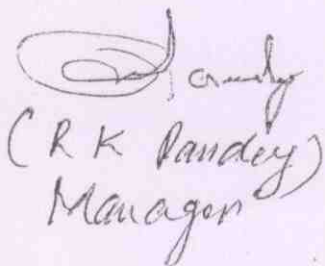 (R K Pandey)
Manager